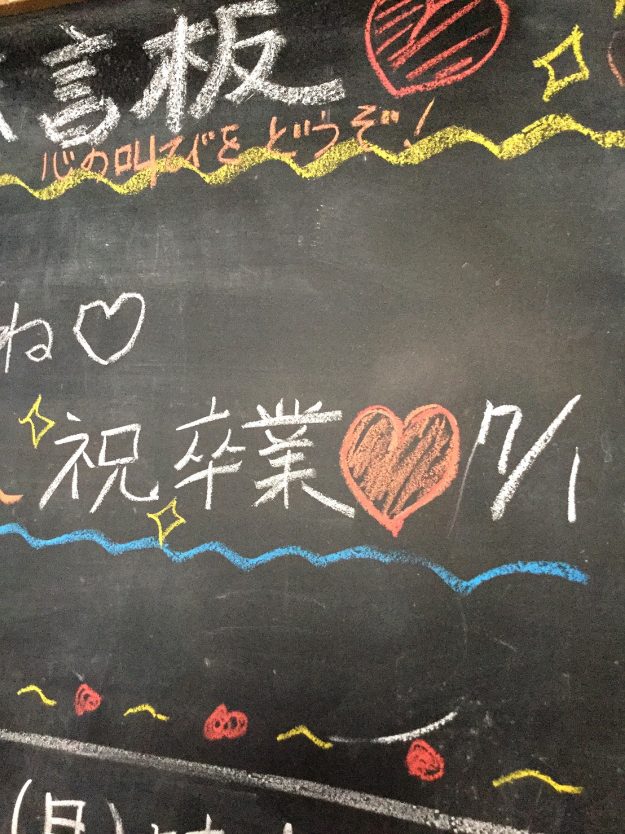 言板
心の叫びをどうぞ!
ね♡
祝卒業 7/1
(月)